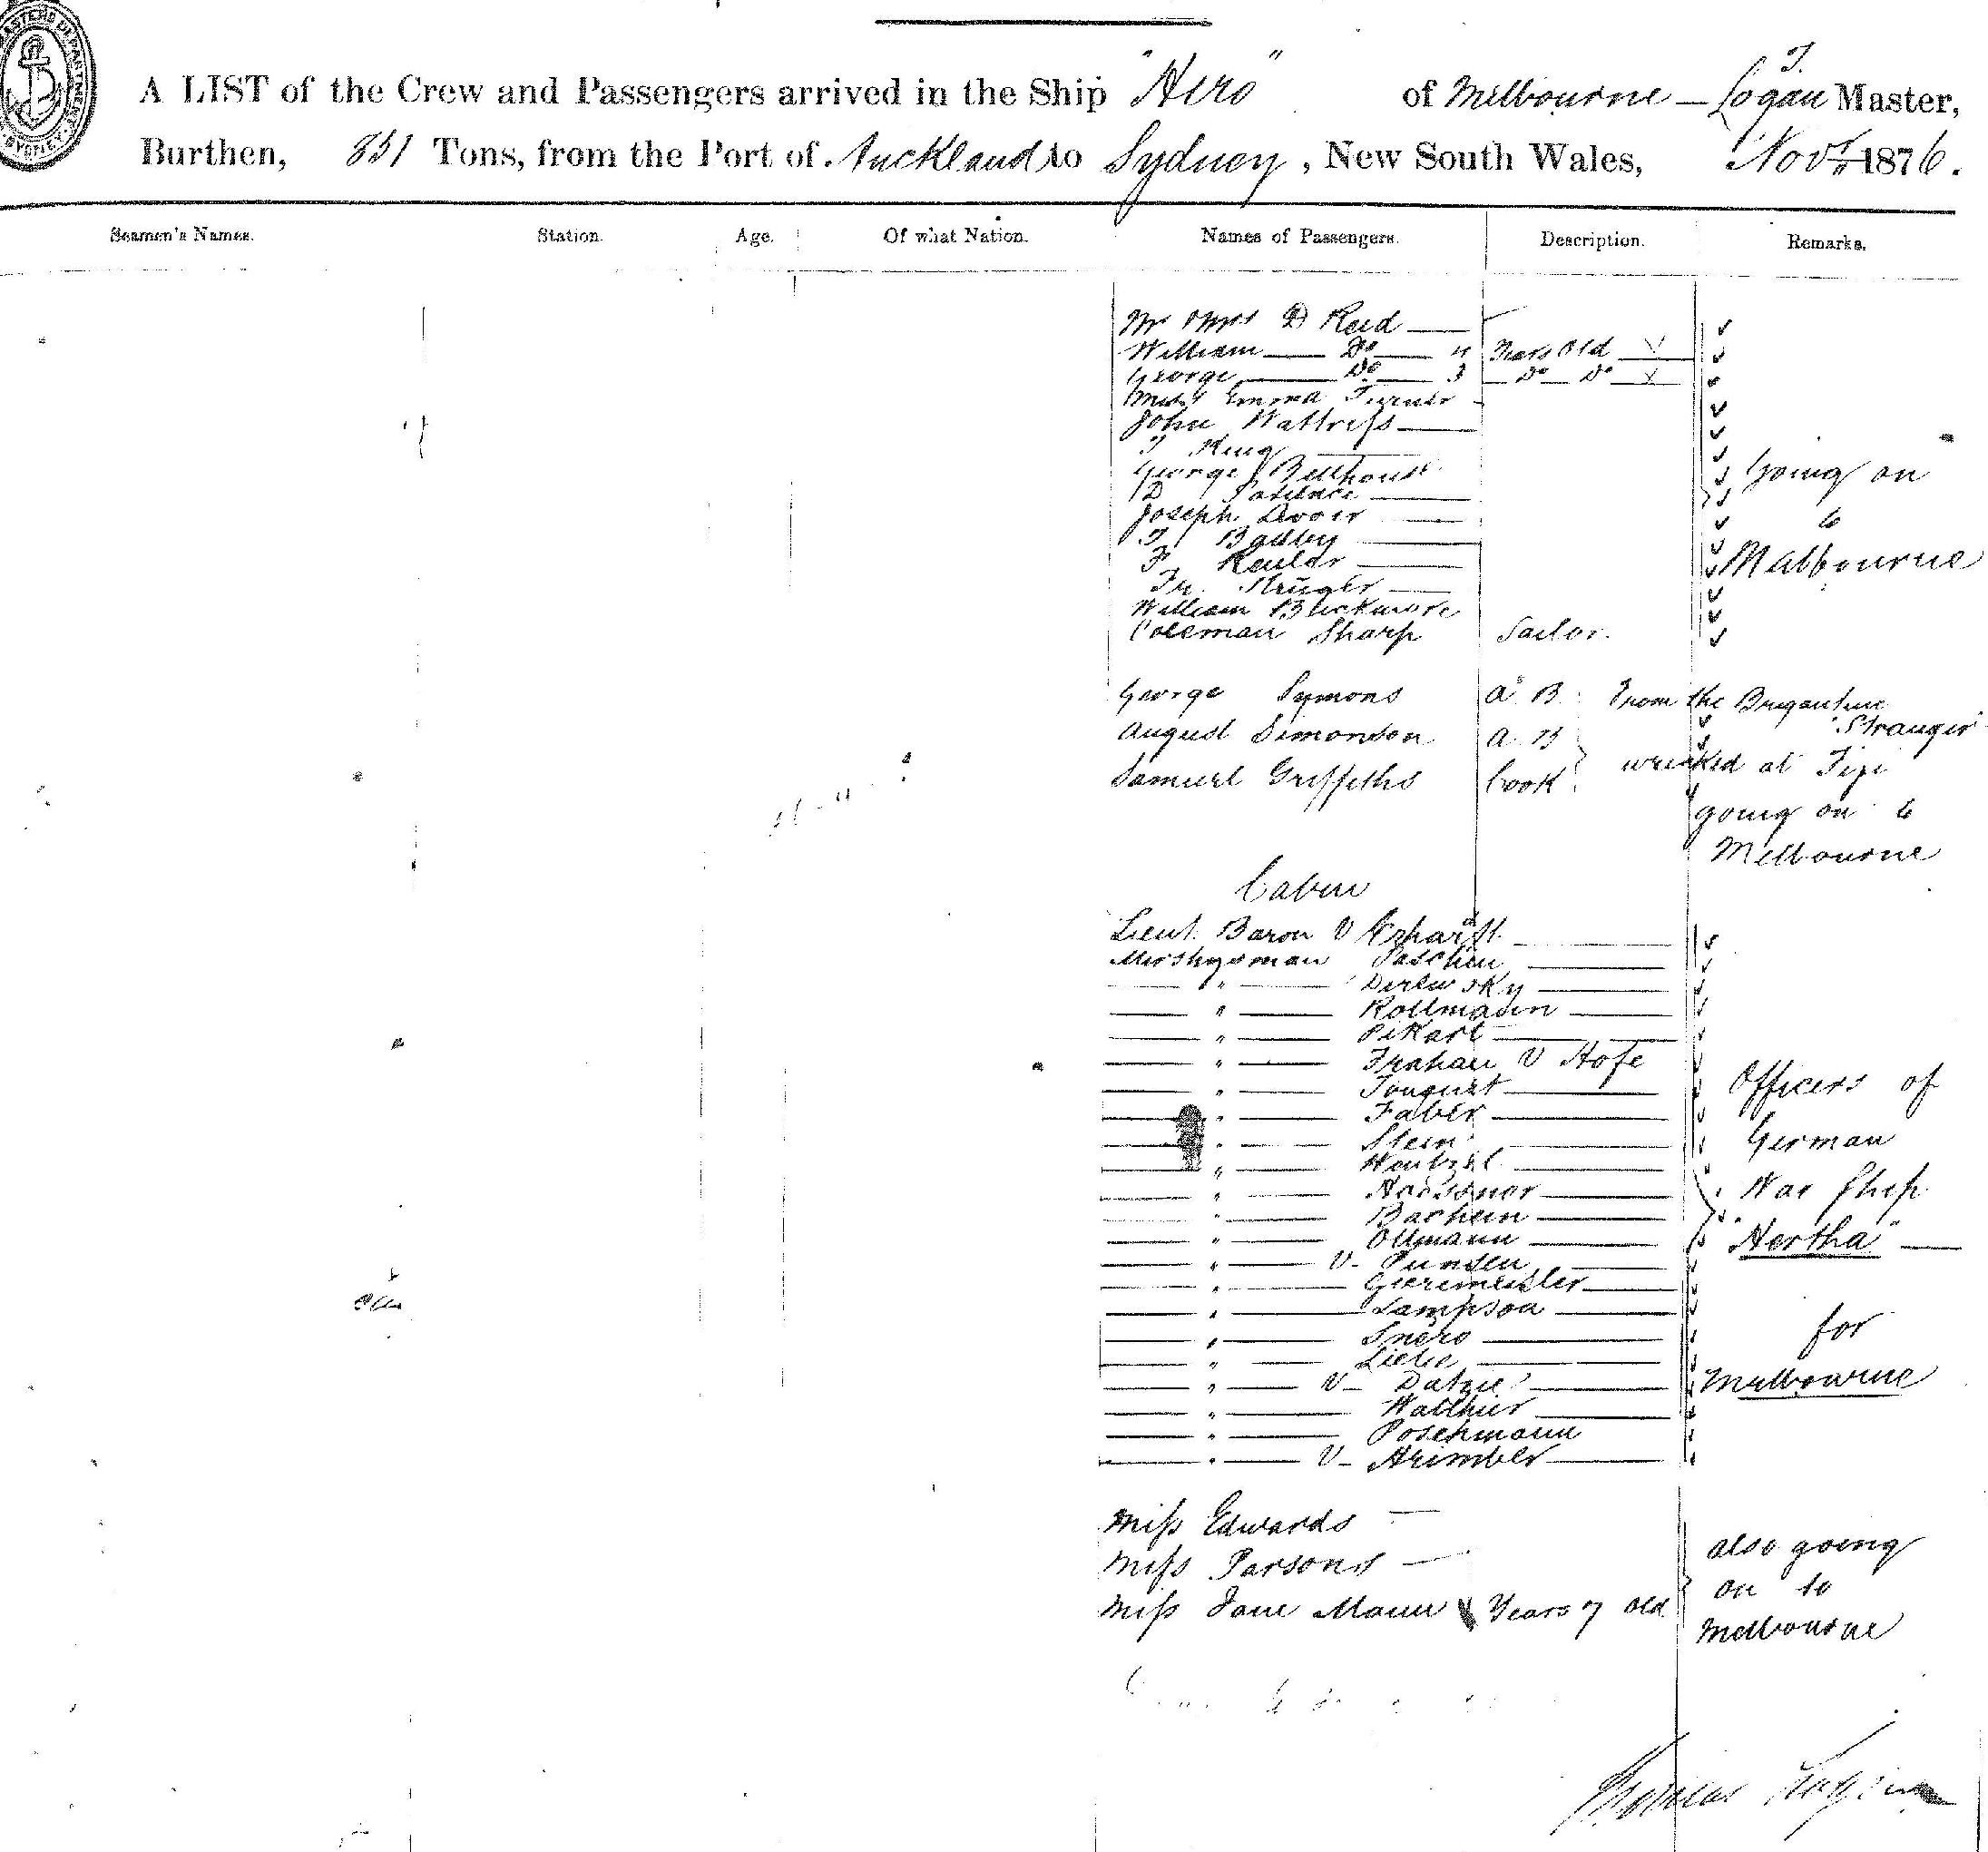 A LIST of the Crew and Passengers arrived in the Ship "Hero" of Melbourne — T. Logan Master,
Burthen, 851 Tons, from the Port of Auckland to Sydney, New South Wales, Novr 1876.
Seamen's Names. Station. Age. Of what Nation. Names of Passengers. Description. Remarks.
Mr & Mrs D Reid
William Do 4 Years Old
George Do 3 Do Do
Miss Emma Turner
John Wattress
T King
George Bellhouse Going on
D Patience
Joseph Devoir to
T Bailby
F Keuler Malbourne
Fr. Krüger
William Buckmore
Coleman Sharp Sailor.
George Symons A B From the Brigantine
August Simonson A B "Stranger"
wrecked at Fiji
Samuel Griffiths Cook
going on to
Melbourne
Cabin
Lieut. Baron V
Paschen
" Direwsky
" Rottmann
" Pikart
" V Hofe
" Touquet Officers of
" Faber
" Stein German
" Wentzel
" War Ship
" Bachem
" Ollmann "Hertha"
" V.
" Geermeister
" Lampson
" for
" Liebe
" V. Melbourne
" Walther
" Poschmann
" V. Krimbler
Miss Edwards
also going
Miss Parsons
on to
Miss Jane Mann Years 7 old
Melbourne
Thomas Logan